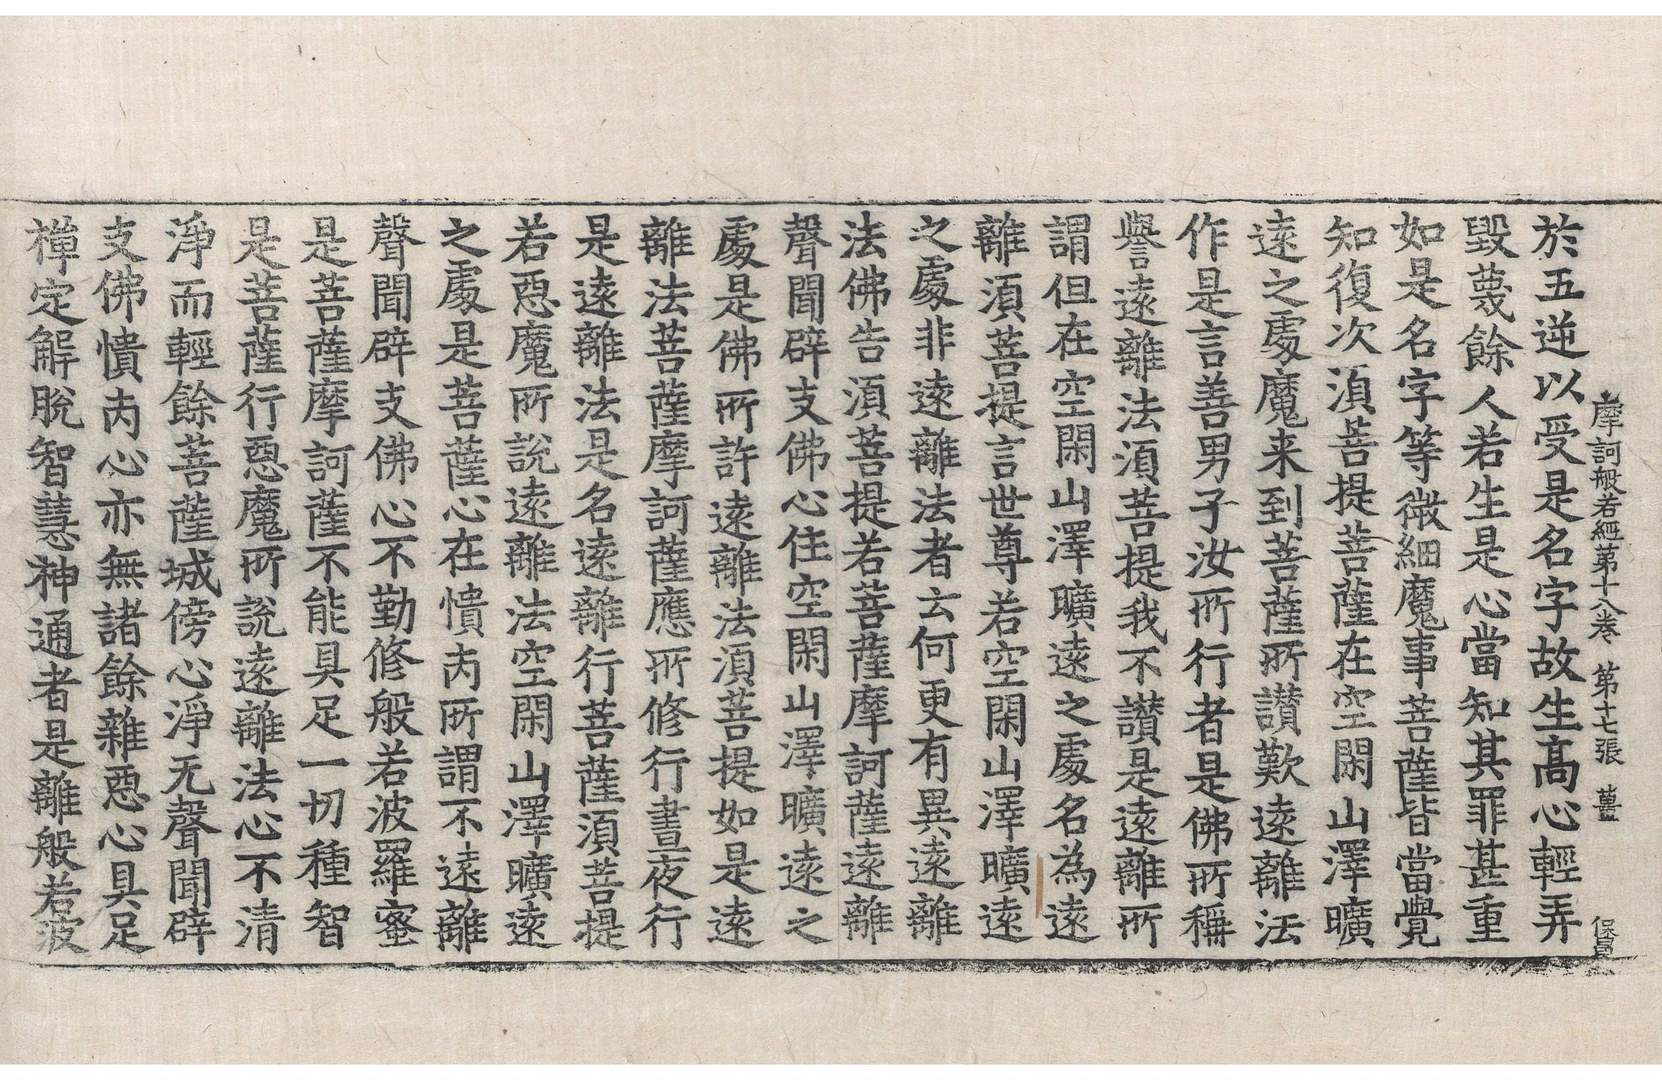 摩訶般若經第十八卷　第十七張　薑
於五逆以受是名字故生髙心輕弄
毀蔑餘人若生是心當知其罪甚重
如是名字等微細魔事菩薩皆當覺
知復次須菩提菩薩在空閑山澤曠
遠之處魔来到菩薩所讃歎遠離法
作是言善男子汝所行者是佛所稱
譽遠離法須菩提我不讃是遠離所
謂但在空閑山澤曠遠之處名為遠
離須菩提言世尊若空閑山澤曠遠
之處非遠離法者云何更有異遠離
法佛告須菩提若菩薩摩訶薩遠離
聲聞辟支佛心住空閑山澤曠遠之
處是佛所許遠離法須菩提如是遠
離法菩薩摩訶薩應所修行晝夜行
是遠離法是名遠離行菩薩須菩提
若惡魔所說遠離法空閑山澤曠遠
之處是菩薩心在憒丙所謂不遠離
聲聞辟支佛心不勤修般若波羅蜜
是菩薩摩訶薩不能具足一切種智
是菩薩行惡魔所說遠離法心不清
淨而輕餘菩薩城傍心淨无聲聞辟
支佛憒丙心亦無諸餘雜惡心具足
禅定解脫智慧神通者是離般若波